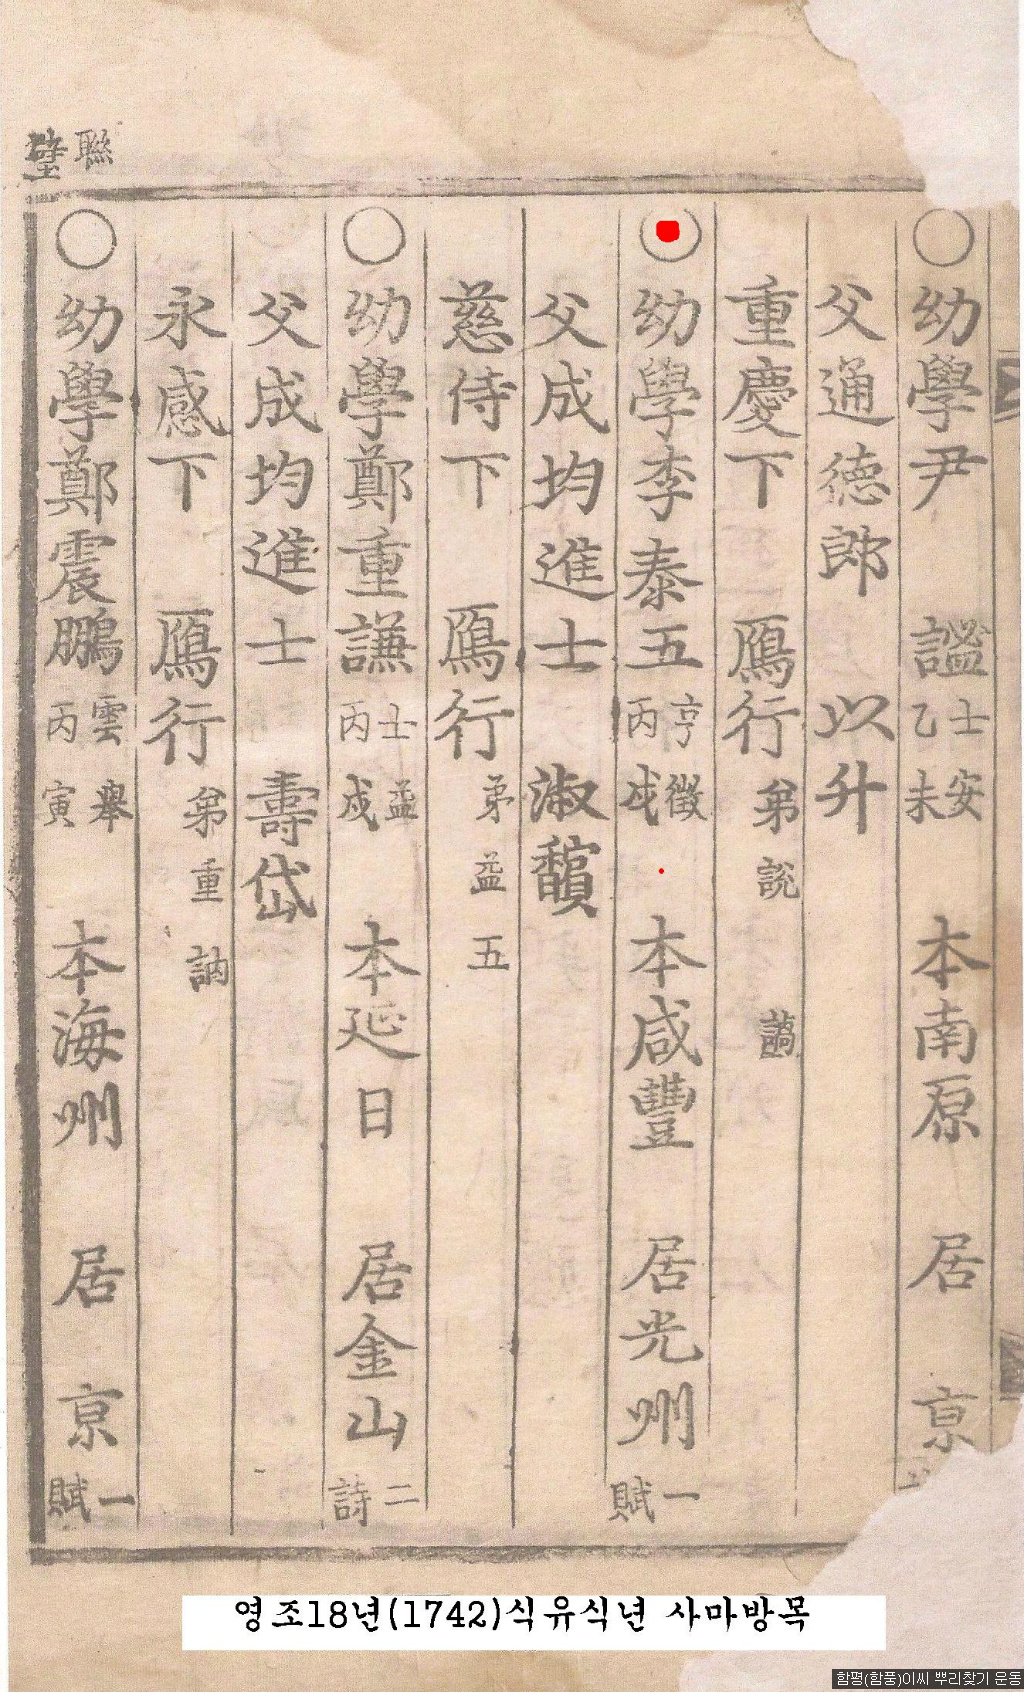 聯璧
○幼學尹 謐 士安 乙未 本南原 居 京
父通德郎 以升
重慶下 鴈行 弟說 譪
○幼學李泰五 亨徵 丙戌 本咸豐 居光州 一賦
父成均進士 淑馩
慈侍下 鴈行 弟益五
○幼學鄭重謙 士益 丙戌 本延日 居金山 二詩
父成均進士 壽岱
永感下 鴈行 弟重訥
○幼學鄭震鵬 雲舉 丙寅 本海州 居 京 一賦
영조18년(1742)식유식년 사마방목
함평(함풍)이씨 뿌리찾기 운동